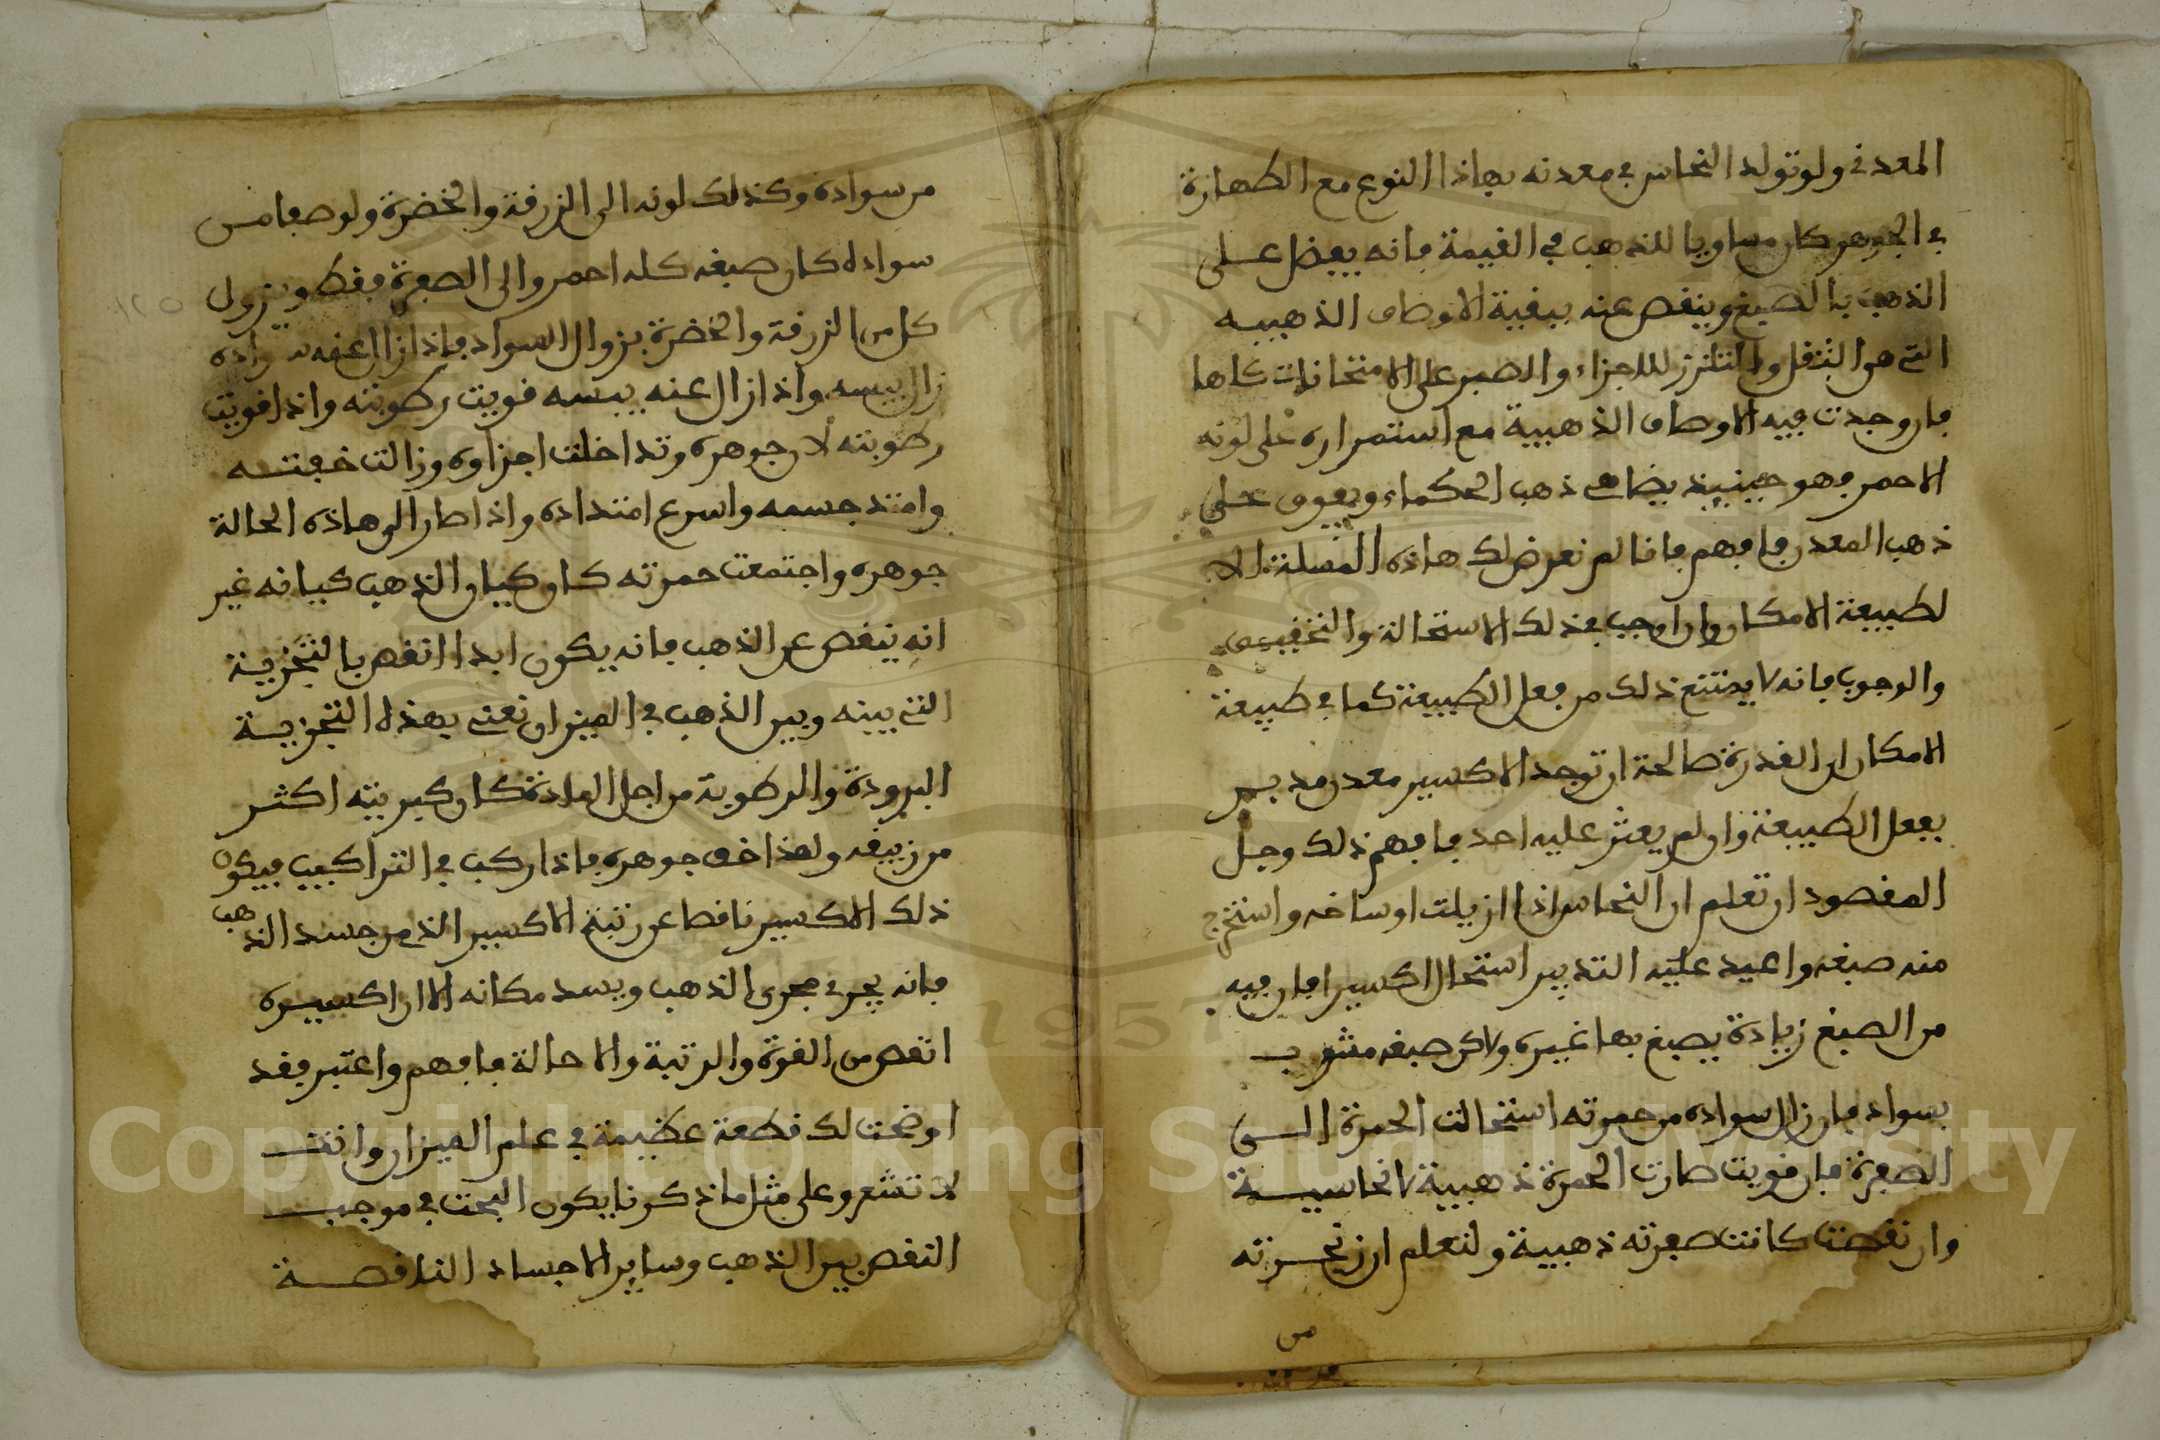 المعدني ولو تولد النحاس في معدنه بهاذا النوع مع الطهارة
في الجوهر كان مساويا للذهب في القيمة فانه يفضل على
الذهب بالصبغ وينقص عنه ببقية الاوصاف الذهبيه
التي هي الثقل والتلزز للاجزاء والصبر على الامتحانات كلها
فان وجدت فيه الاوصاف الذهبية مع استمراره على لونه
الاحمر فهو حينيذ يضاهي ذهب الحكماء ويفوق على
ذهب المعدن فافهم فانا لم نعرض لك هاذه المسلة الا
لطبيعة الامكان وان اوجب في ذلك الاستحالة والتخفيف
والوجوب فانه لا يمتنع ذلك من فعل الطبيعة كما في طبيعة
الامكان ان القدرة صالحة ان توجد الاكسير معدن مدبر
بفعل الطبيعة وان لم يعثر عليه احد فافهم ذلك وجل
المقصود ان تعلم ان النحاس اذا ازيلت اوساخه واستخرج
منه صبغه واعيد عليه التدبير استحال اكسيرا فان فيه
من الصبغ زيادة يصبغ بها غيره ولاكن صبغه مشوب
بسواد فان زال سواده من حمرته استحالت الحمرة الى
الصفرة فان قويت صارت الحمرة ذهبية لا نحاسية
وان نقصت كانت صفرته ذهبية ولتعلم ان زنجرته
من
من سواده وكذلك لونه الى الزرقة والخضرة ولو صفا من
سواده كان صبغه كله احمر والى الصفرة فقط ويزول
كل من الزرقة والخضرة بزوال السواد فاذا زال عنه سواده
زال يبسه واذا زال عنه يبسه قويت رطوبته واذا قويت
رطوبته لان جوهره وتداخلت اجزاوه وزالت خفته
وامتد جسمه واسرع امتداده واذا صار الى هاذه الحالة
جوهره واجتمعت حمرته كان كيان الذهب كيانه غير
انه ينقص عن الذهب فانه يكون ابدا انقص بالتجزية
التي بينه وبين الذهب في الميزان نعني بهذه التجزية
البرودة والرطوبة من اجل المادة كان كبريته اكثر
من زيبقه ولهذا خف جوهره فاذا ركب في التراكيب فيكون
ذلك الاكسير ناقصا عن رتبة الاكسير الذي من جسد الذهب
فانه يجري مجرى الذهب ويسد مكانه الا ان اكسيره
انقص من القوة والرتبة والاحالة فافهم واعتبر فقد
اوضحت لك قطعة عظيمة في علم الميزان وانت
لا تشعر وعلى مثل ما ذكرنا يكون البحث في موجب
النقص بين الذهب وساير الاجساد الناقصة